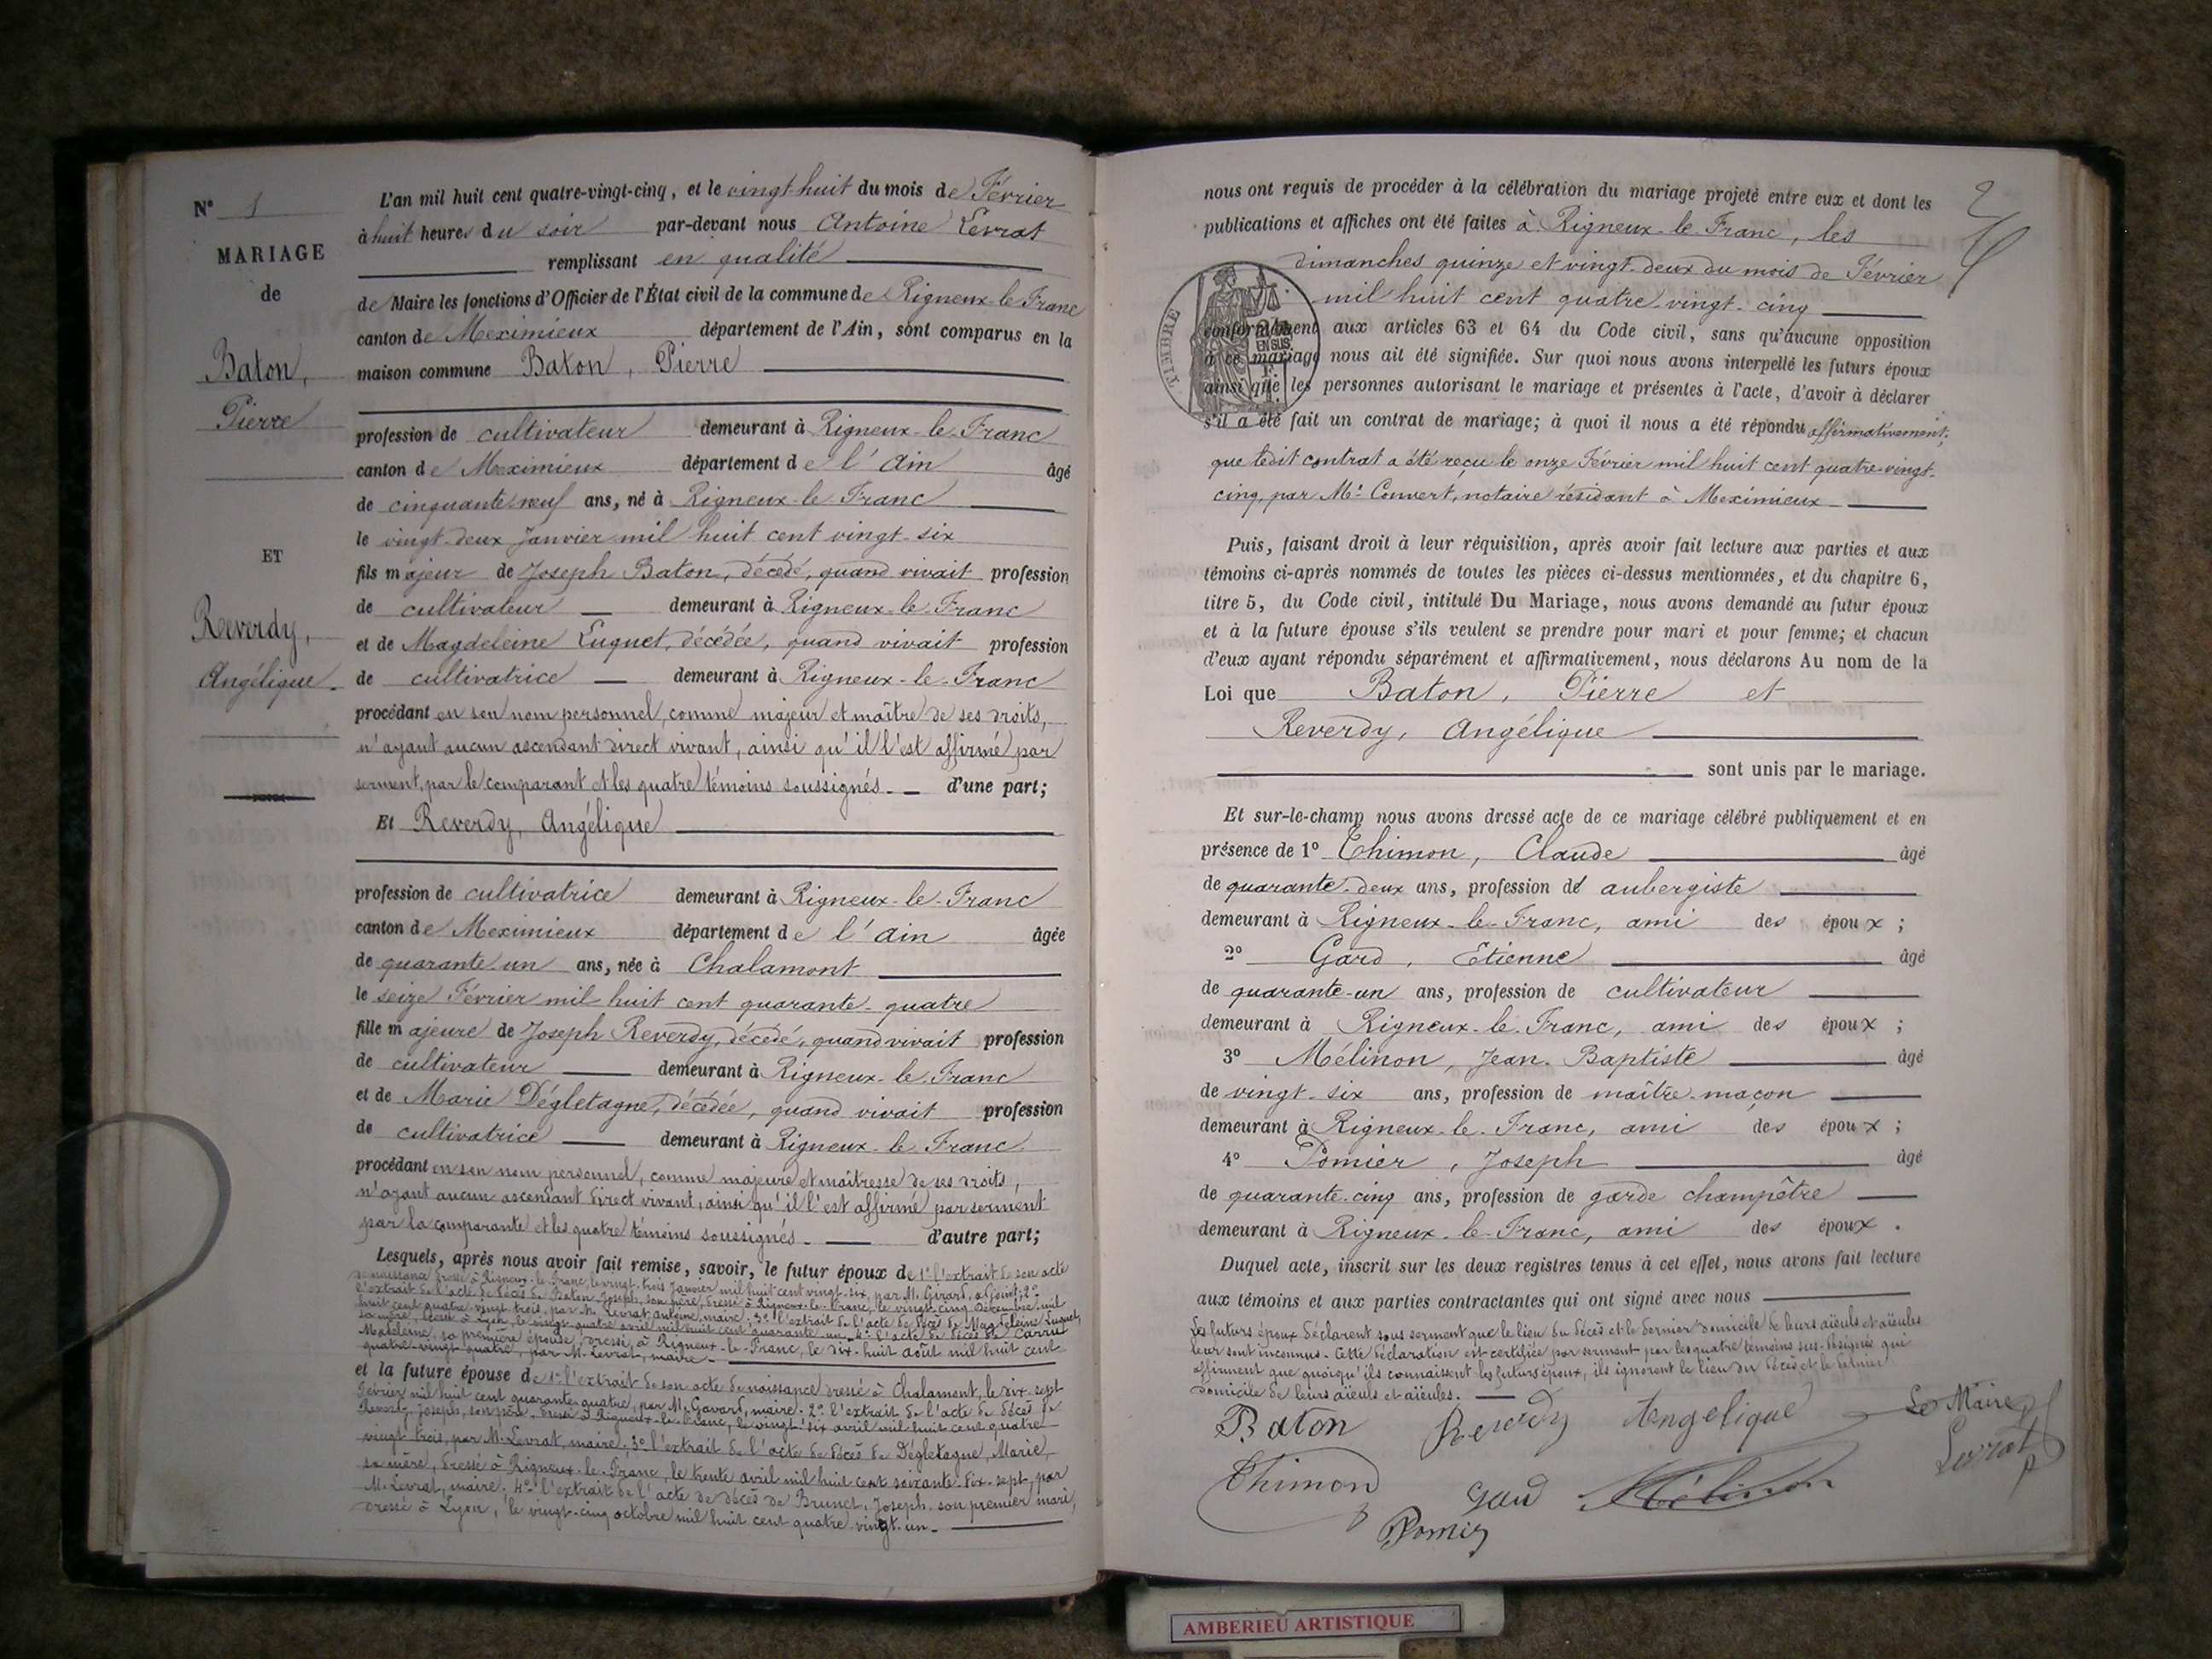 N° 1
MARIAGE
de
Baton,
Pierre
ET
Reverdy,
Angélique.
L'an mil huit cent quatre-vingt-cinq, et le vingt-huit du mois de Février
à huit heures du soir par-devant nous Antoine Levrat
remplissant en qualité
de Maire les fonctions d'Officier de l'État civil de la commune de Rigneux-le-Franc
canton de Meximieux département de l'Ain, sont comparus en la
maison commune Baton, Pierre
profession de cultivateur demeurant à Rigneux-le-Franc
canton de Meximieux département de l'Ain âgé
de cinquante-neuf ans, né à Rigneux-le-Franc
le vingt-deux Janvier mil huit cent vingt-six
fils majeur de Joseph Baton, décédé, quand vivait profession
de cultivateur demeurant à Rigneux-le-Franc
et de Magdeleine Luguet, décédée, quand vivait profession
de cultivatrice demeurant à Rigneux-le-Franc
procédant en son nom personnel, comme majeur et maître de ses droits,
n'ayant aucun ascendant direct vivant, ainsi qu'il l'est affirmé par
serment, par le comparant et les quatre témoins soussignés. d'une part;
Et Reverdy, Angélique
profession de cultivatrice demeurant à Rigneux-le-Franc
canton de Meximieux département de l'Ain âgée
de quarante-un ans, née à Chalamont
le seize Février mil huit cent quarante-quatre
fille majeure de Joseph Reverdy, décédé, quand vivait profession
de cultivateur demeurant à Rigneux-le-Franc
et de Marie Dégletagne, décédée, quand vivait profession
de cultivatrice demeurant à Rigneux-le-Franc
procédant en son nom personnel, comme majeure et maîtresse de ses droits,
n'ayant aucun ascendant direct vivant, ainsi qu'il l'est affirmé par serment
par la comparante et les quatre témoins soussignés. d'autre part;
Lesquels, après nous avoir fait remise, savoir, le futur époux de 1° l'extrait de son acte
de naissance dressé à Rigneux-le-Franc, le vingt-trois Janvier mil huit cent vingt-six, par M. Girard, adjoint; 2°
l'extrait de l'acte de décès de Baton Joseph, son père, dressé à Rigneux-le-Franc, le vingt-cinq Décembre mil
huit cent quatre-vingt-trois, par M. Levrat, Antoine, maire; 3° l'extrait de l'acte de décès de Magdeleine Luguet,
sa mère, dressé à Lyon, le vingt-quatre avril mil huit cent quarante-un; 4° l'acte de décès de Carrut
Madeleine, sa première épouse, dressé à Rigneux-le-Franc, le dix-huit août mil huit cent
quatre-vingt-quatre, par M. Levrat, maire.
et la future épouse de 1° l'extrait de son acte de naissance dressé à Chalamont, le dix-sept
Février mil huit cent quarante-quatre, par M. Gavard, maire. 2° l'extrait de l'acte de décès de
Reverdy, Joseph, son père, dressé à Rigneux-le-Franc, le vingt-six avril mil huit cent quatre-
vingt-trois, par M. Levrat, maire; 3° l'extrait de l'acte de décès de Dégletagne, Marie,
sa mère, dressé à Rigneux-le-Franc, le trente avril mil huit cent soixante-dix-sept, par
M. Levrat, maire; 4° l'extrait de l'acte de décès de Brunet, Joseph, son premier mari,
dressé à Lyon, le vingt-cinq octobre mil huit cent quatre-vingt-un.
2
nous ont requis de procéder à la célébration du mariage projeté entre eux et dont les
publications et affiches ont été faites à Rigneux-le-Franc, les
dimanches quinze et vingt-deux du mois de Février
mil huit cent quatre-vingt-cinq
TIMBRE
EN SUS
conformément aux articles 63 et 64 du Code civil, sans qu'aucune opposition
à ce mariage nous ait été signifiée. Sur quoi nous avons interpellé les futurs époux
ainsi que les personnes autorisant le mariage et présentes à l'acte, d'avoir à déclarer
s'il a été fait un contrat de mariage; à quoi il nous a été répondu affirmativement;
que ledit contrat a été reçu le onze Février mil huit cent quatre-vingt-
cinq, par Me Convert, notaire résidant à Meximieux
Puis, faisant droit à leur réquisition, après avoir fait lecture aux parties et aux
témoins ci-après nommés de toutes les pièces ci-dessus mentionnées, et du chapitre 6,
titre 5, du Code civil, intitulé Du Mariage, nous avons demandé au futur époux
et à la future épouse s'ils veulent se prendre pour mari et pour femme; et chacun
d'eux ayant répondu séparément et affirmativement, nous déclarons Au nom de la
Loi que Baton, Pierre et
Reverdy, Angélique
sont unis par le mariage.
Et sur-le-champ nous avons dressé acte de ce mariage célébré publiquement et en
présence de 1° Thimon, Claude âgé
de quarante-deux ans, profession de aubergiste
demeurant à Rigneux-le-Franc, ami des époux;
2° Gard, Etienne âgé
de quarante-un ans, profession de cultivateur
demeurant à Rigneux-le-Franc, ami des époux;
3° Mélinon, Jean-Baptiste âgé
de vingt-six ans, profession de maître-maçon
demeurant à Rigneux-le-Franc, ami des époux;
4° Pomier, Joseph âgé
de quarante-cinq ans, profession de garde champêtre
demeurant à Rigneux-le-Franc, ami des époux.
Duquel acte, inscrit sur les deux registres tenus à cet effet, nous avons fait lecture
aux témoins et aux parties contractantes qui ont signé avec nous
Les futurs époux déclarent sous serment que le lieu du décès et le dernier domicile de leurs aïeuls et aïeules
leur sont inconnus. Cette déclaration est certifiée par serment par les quatre témoins sus-désignés qui
affirment que quoiqu'ils connaissent les futurs époux, ils ignorent le lieu du décès et le dernier
domicile de leurs aïeuls et aïeules.
Baton Reverdy Angelique Le Maire
Levrat
Thimon Gard Mélinon
Pomier
AMBERIEU ARTISTIQUE